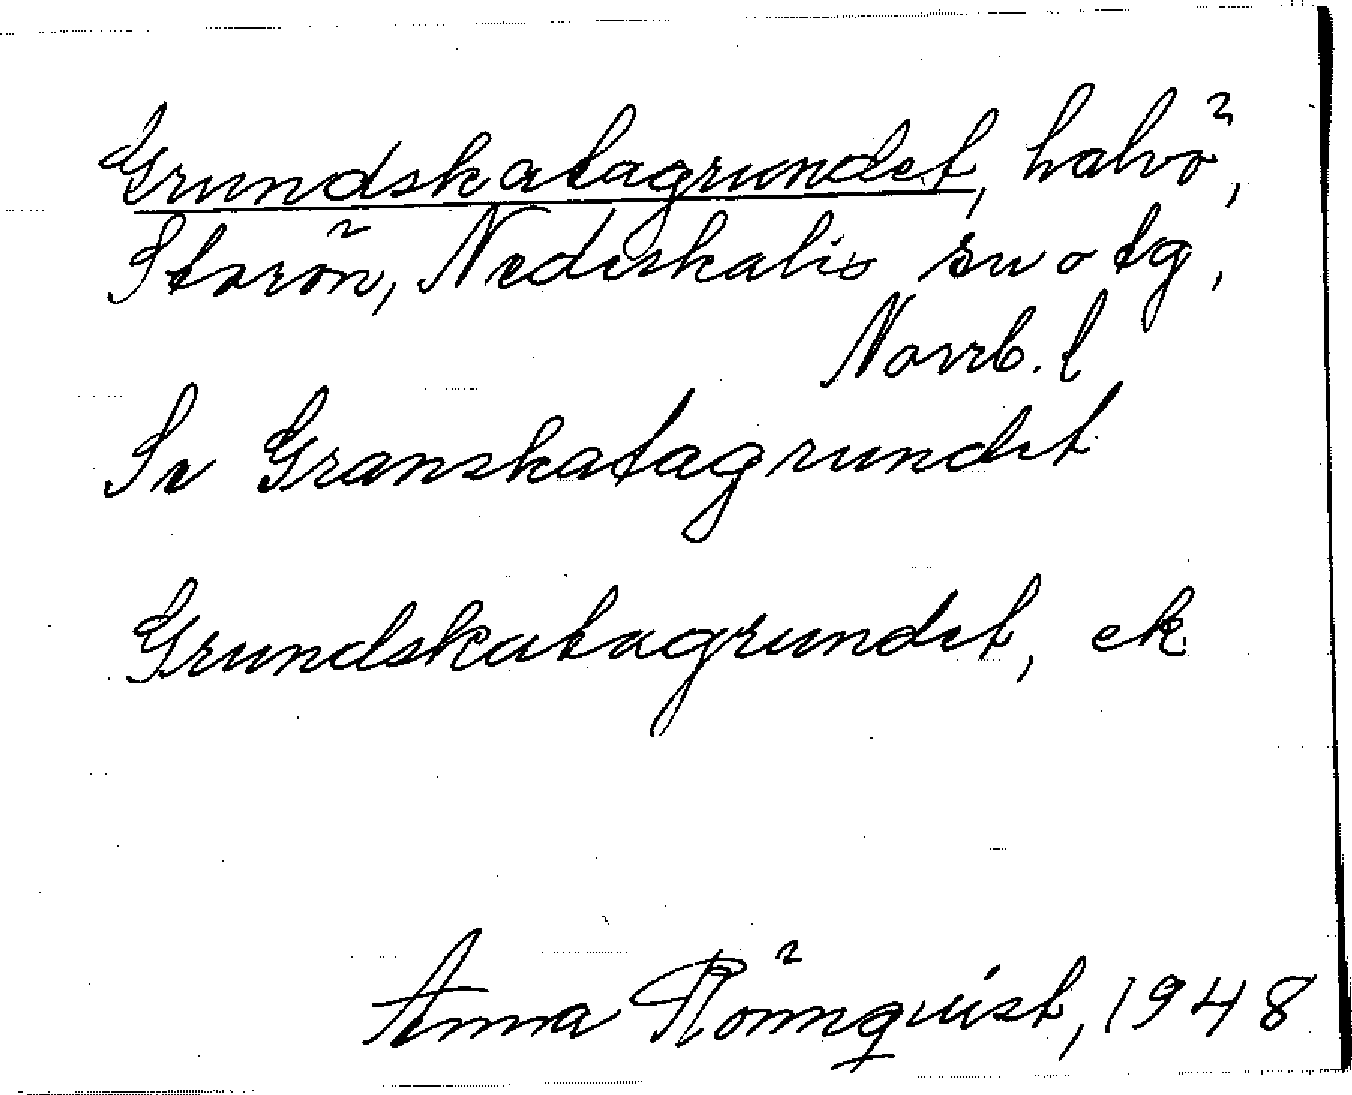 Grundskatagrundet, halvö,
Storön, Nederkalix sn o tg,
Norrb. l
Se Granskatagrundet
Grundskatagrundet, ek
Anna Rönnqvist, 1948